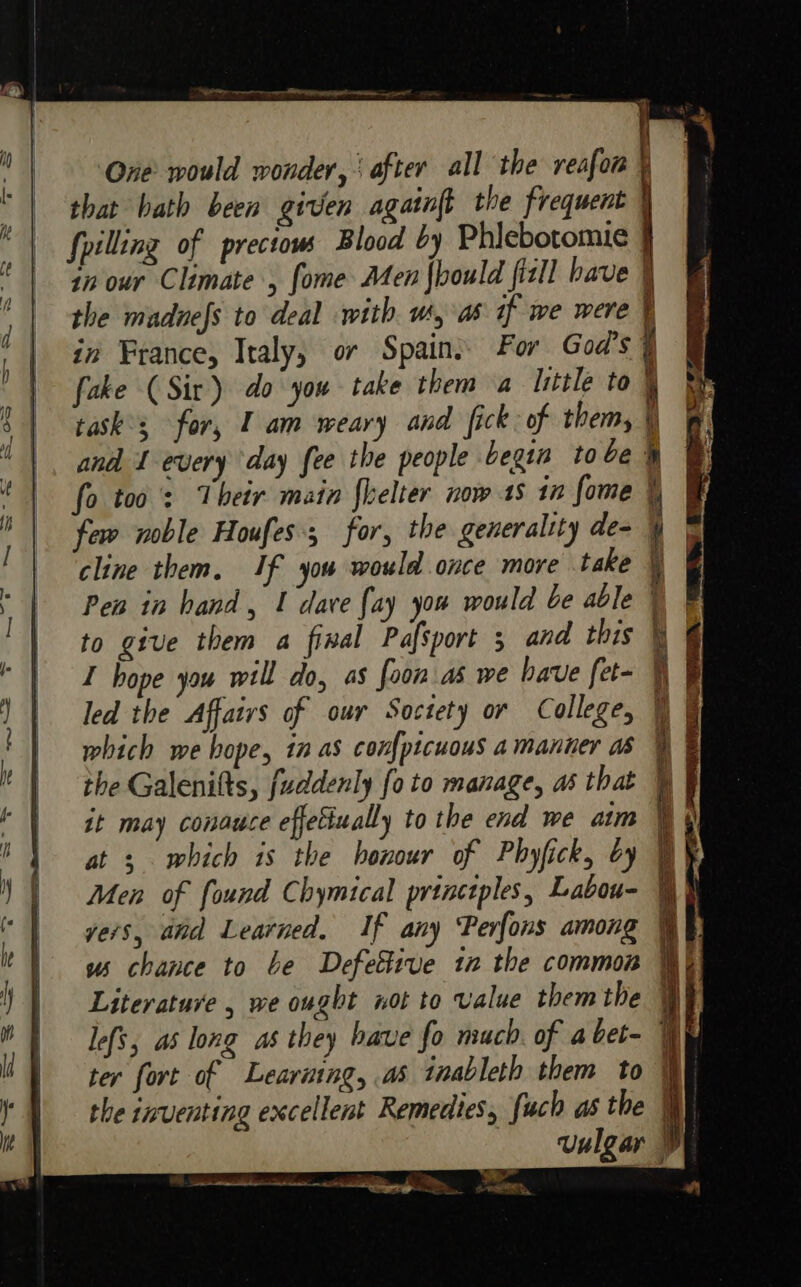 One would wonder, after all the reaſon
that hath been given againſt the frequent
ſpilling of precious Blood by Phlebotomie
in our Climate, ſome Men ſhould ſtill have
the madneſs to deal with us, as if we were
in France, Italy, or Spain. For God's
ſake (Sir) do you take them a little to
task; for, I am weary and ſick of them,
and I every day ſee the people begin to be
ſo too: Their main ſhelter now is in ſome
few noble Houſes; for, the generality de-
cline them. If you would once more take
Pen in hand, I dare ſay you would be able
to give them a final Paſsport; and this
I hope you will do, as ſoon as we have ſet-
led the Affairs of our Society or College,
which we hope, in as conſpicuous a manner as
the Galeniſts, ſuddenly ſo to manage, as that
it may conduce effectually to the end we aim
at; which is the honour of Phyſick, by
Men of ſound Chymical principles, Labou-
rers, and Learned. If any Perſons among
us chance to be Defective in the common
Literature, we ought not to value them the
leſs, as long as they have ſo much of a bet-
ter ſort of Learning, as inableth them to
the inventing excellent Remedies, ſuch as the
vulgar